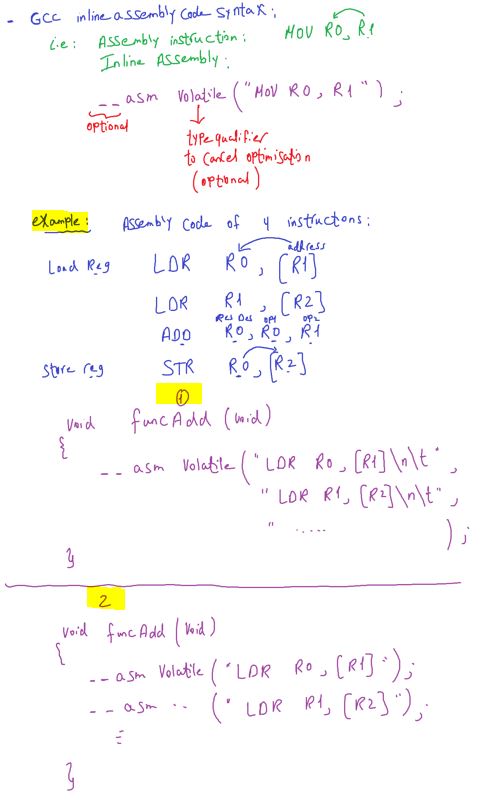 - GCC inline assembly Code Syntax:
i.e: Assembly instruction: MOV R0, R1
Inline Assembly:
__ asm Volatile ("MOV R0, R1");
optional
type qualifier
to Cancel optimisation
(optional)
example: Assembly Code of 4 instructons:
address
Load Reg LDR R0, [R1]
LDR R1, [R2]
Des op1 op2
ADD R0, R0, R1
Store reg STR R0, [R2]
1
void funcAdd (void)
{
__ asm Volatile ("LDR R0, [R1]\n\t",
"LDR R1, [R2]\n\t",
" .....
);
}
2
void funcAdd (void)
{
__ asm Volatile ("LDR R0, [R1]");
__ asm .. ("LDR R1, [R2]");
}